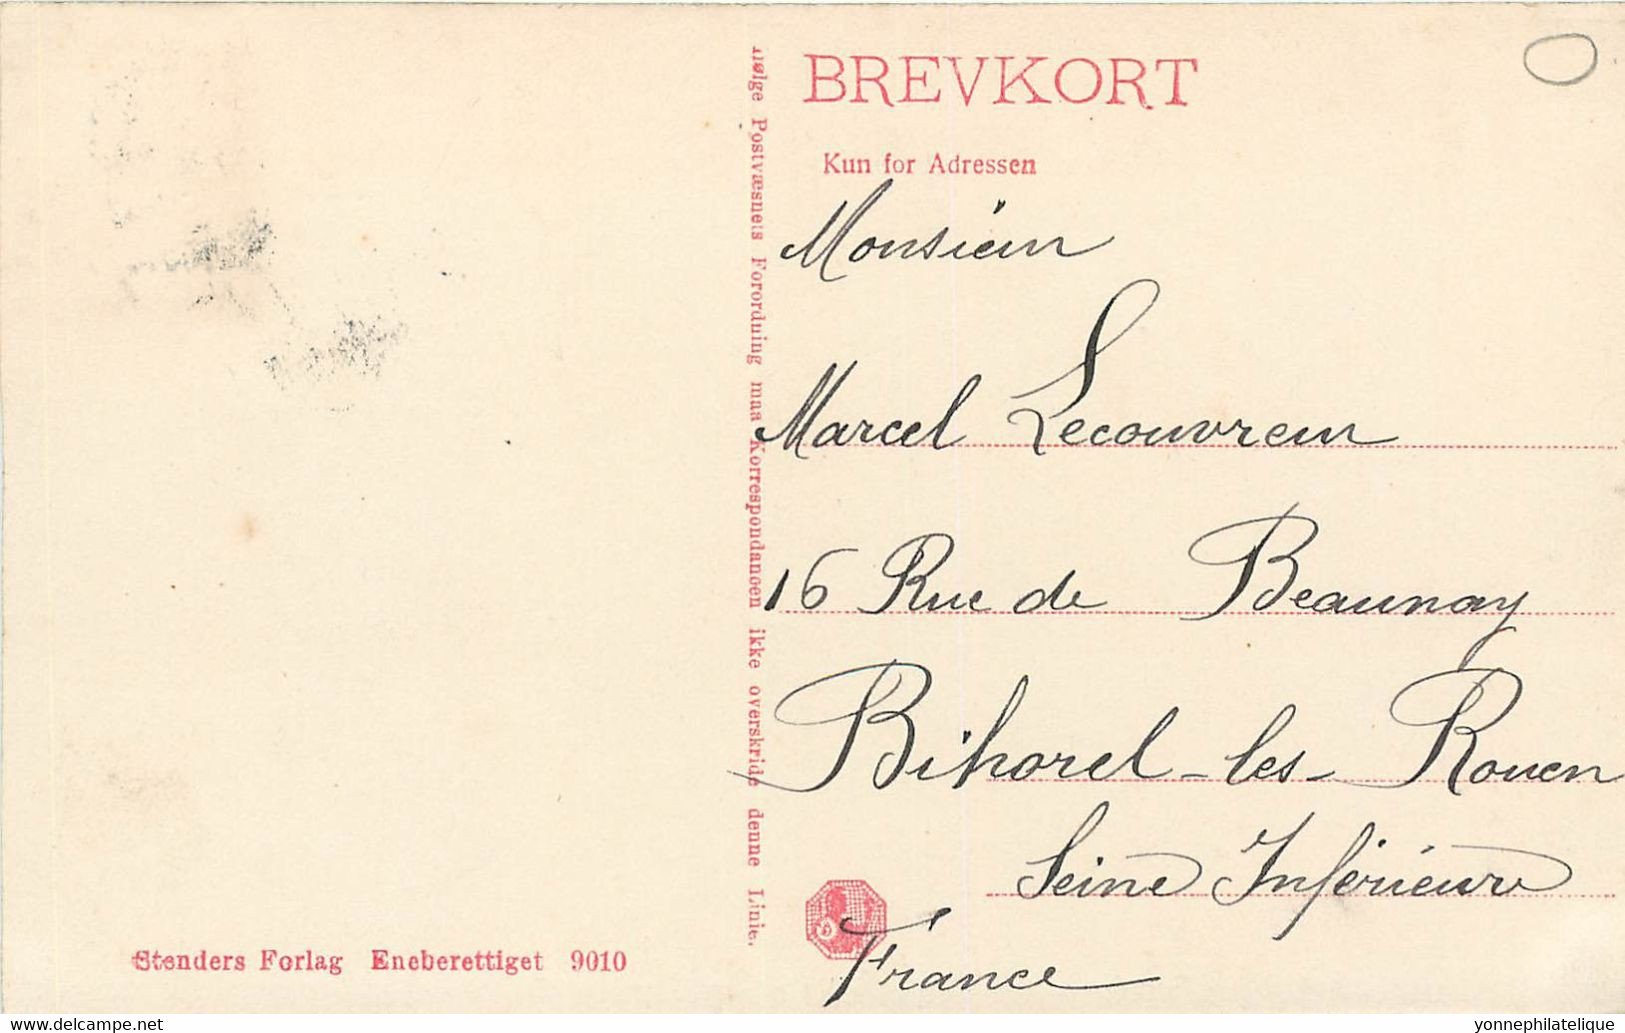 BREVKORT
Kun for Adressen
ifølge Postvæsnets Forordning maa Korrespondancen ikke overskride denne Linie.
Monsieur
Marcel Lecouvreur
16 Rue de Beaunay
Bihorel-les-Rouen
Seine Inférieure
France
Stenders Forlag Eneberettiget 9010
yonnephilatelique
www.delcampe.net